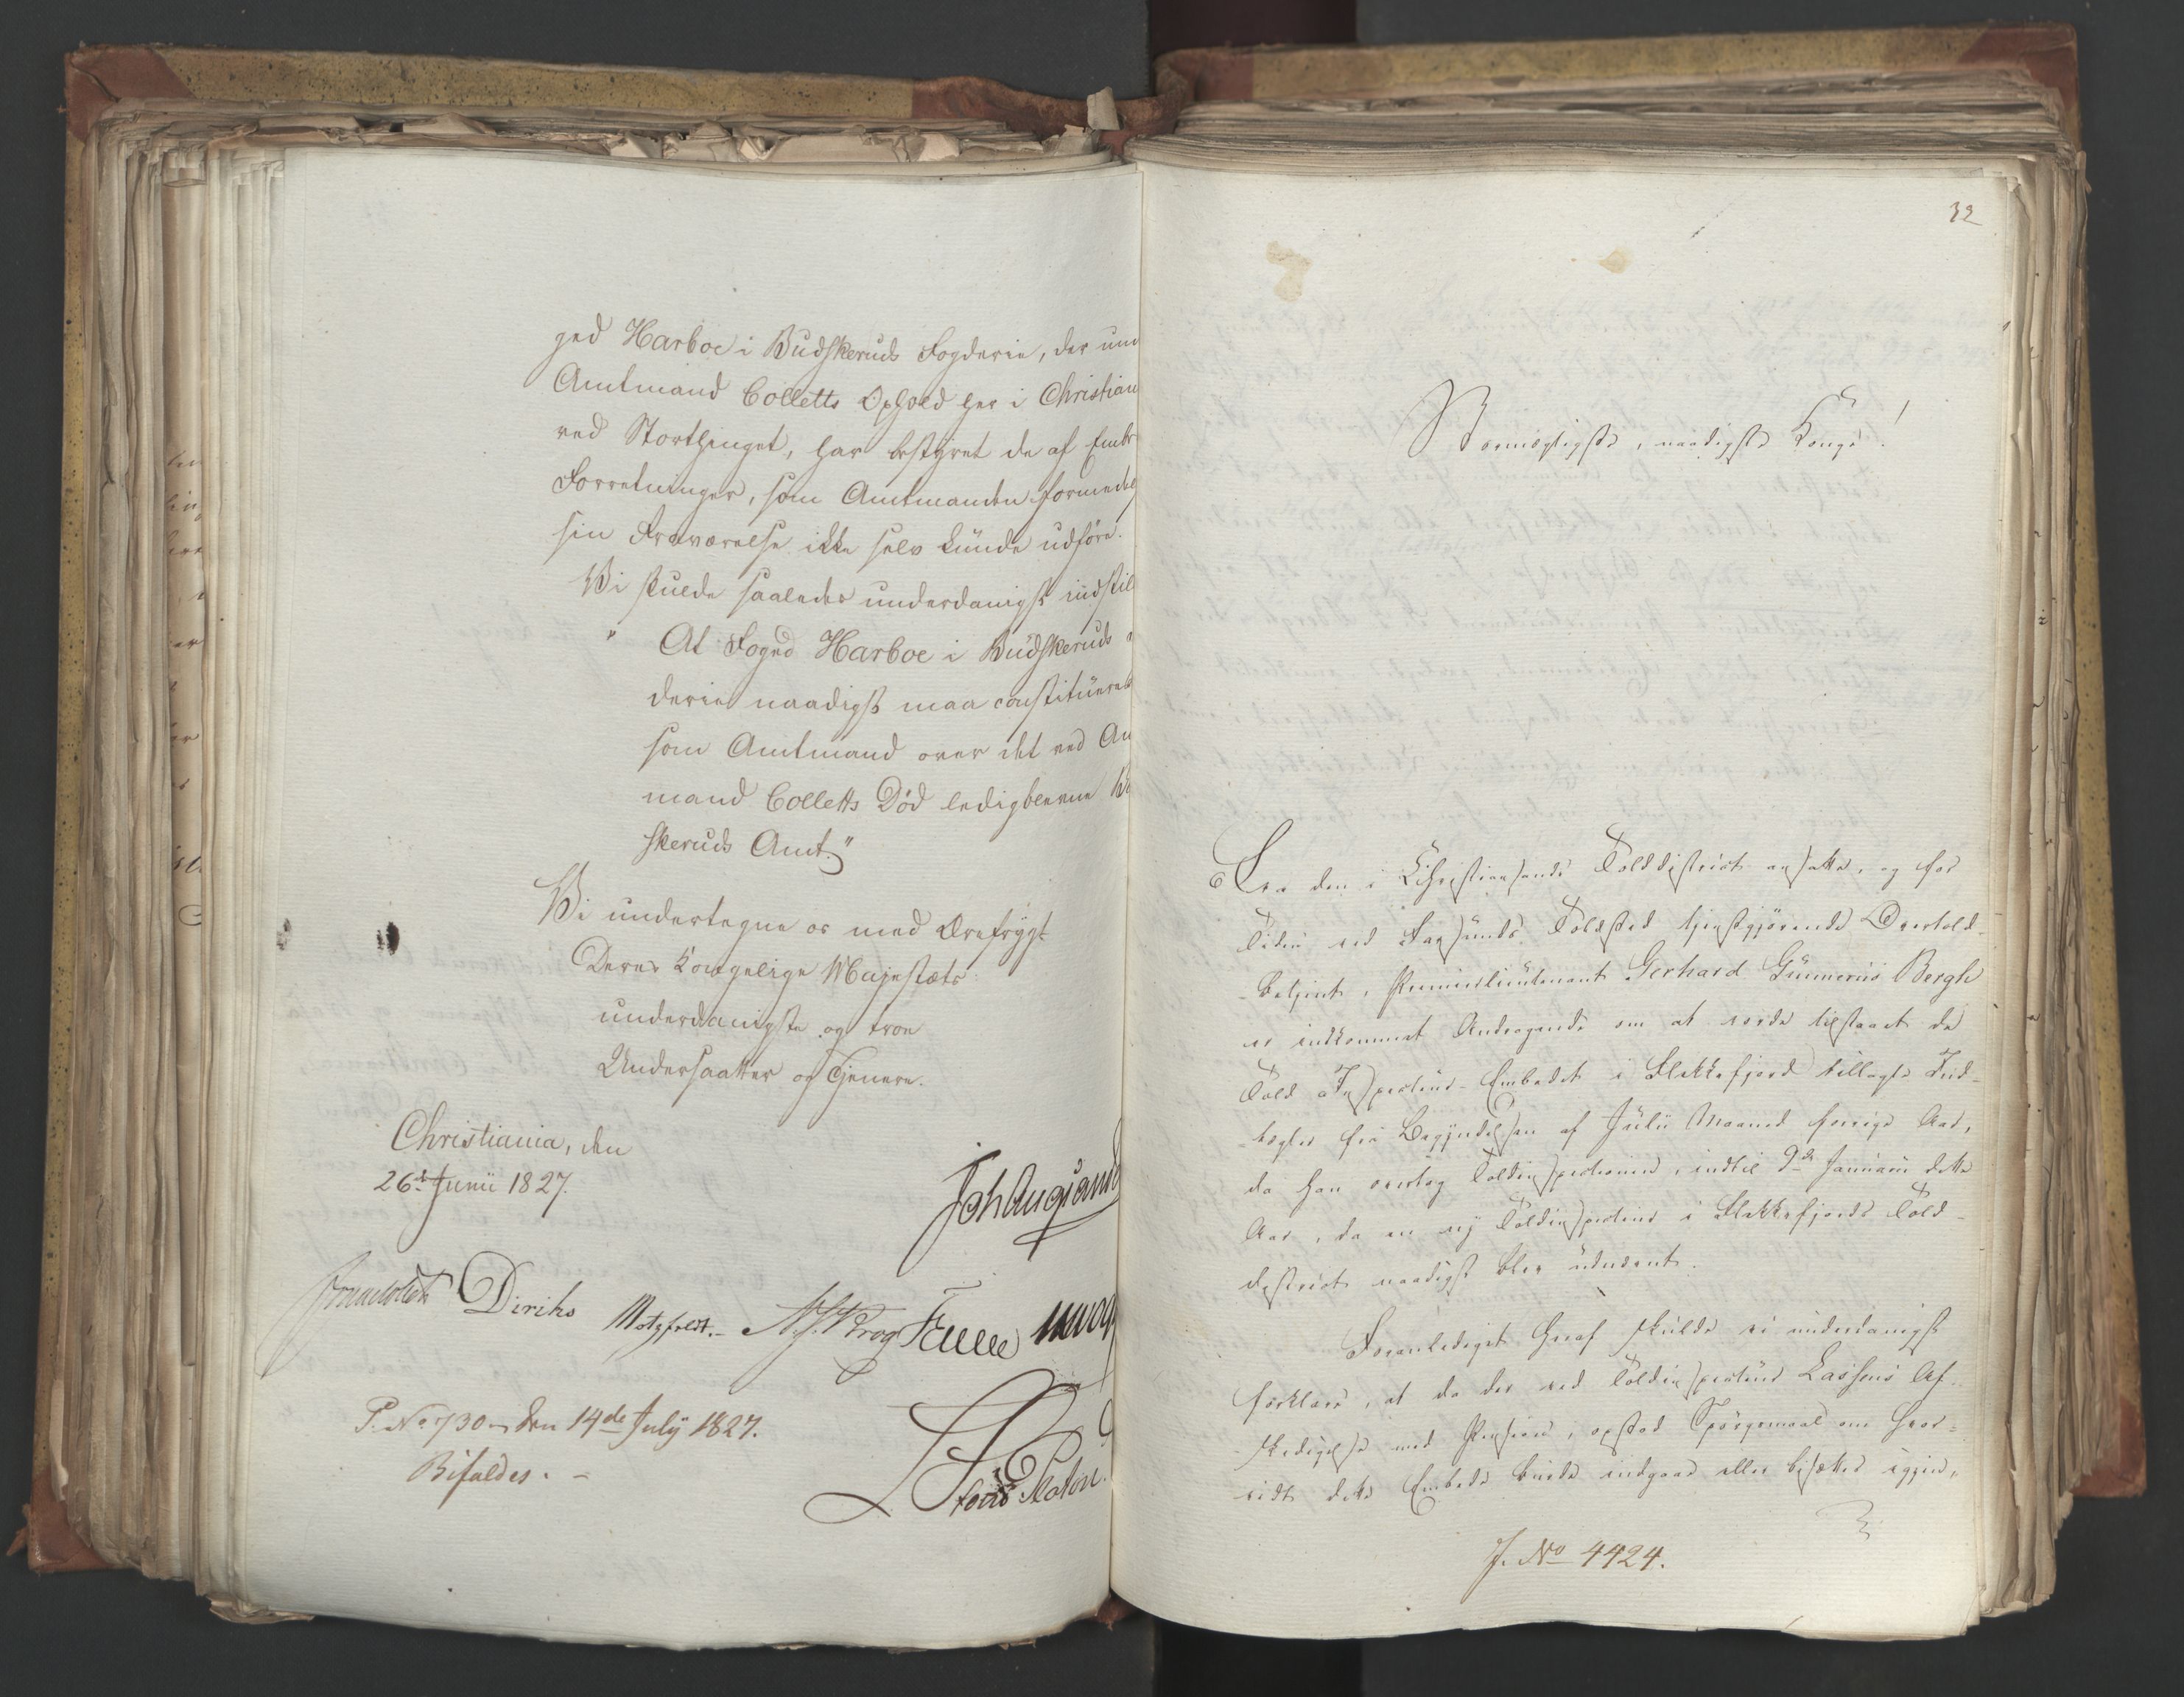 ged Harboe i Budskeruds Fogderie, der un
Amtmand Colletts Ophold her i Christian
ved Storthinget, har bestyret de af Emb
Forretninger, som Amtmanden formedel
sin Fraværelse ikke selv kunde udføre.
Vi skulde saaledes underdanigst indstil
" At Foged Harboe i Budskeruds
derie naadigst maa constitueres
som Amtmand over det ved Am
mand Colletts Død ledigblevne B
skeruds Amt."
Vi undertegne os med Ærefrygt
Deres Kongelige Majestæts
underdanigste og troe
Undersaatter og Tjenere.
Christiania, den
26de Junii 1827.
Joh Aug Sand
Jonas Collett Diriks Motzfeldt. N. J. Krog Fasting
P. No 730 den 14de July 1827.
Bifaldes.
32
Stormægtigste, naadigste Konge!
Fra den i Christiansands Tolddistrict ansatte, og for
Tiden ved Farsunds Toldsted tjenstgjørende Overtold-
betjent, Premierlieutenant Gerhard Gunnerus Bergh
er indkommet Andragende om at vorde tilstaaet de
Told-Inspecteur-Embedet i Flekkefjord tillagte Ind-
tægter fra Begyndelsen af Julii Maaned forrige Aar,
da han overtog Toldinspectionen, indtil 9de Januarii dette
Aar, da en ny Toldinspecteur i Flekkefjords Told-
district naadigst blev udnævnt.
Foranlediget heraf skulde vi underdanigst
forklare, at da der ved Toldinspecteur Lassens Af-
skedigelse med Pension, opstod Spørgsmaal om hvor-
vidt dette Embede burde indgaae eller besættes igjen,
J. No 4424.